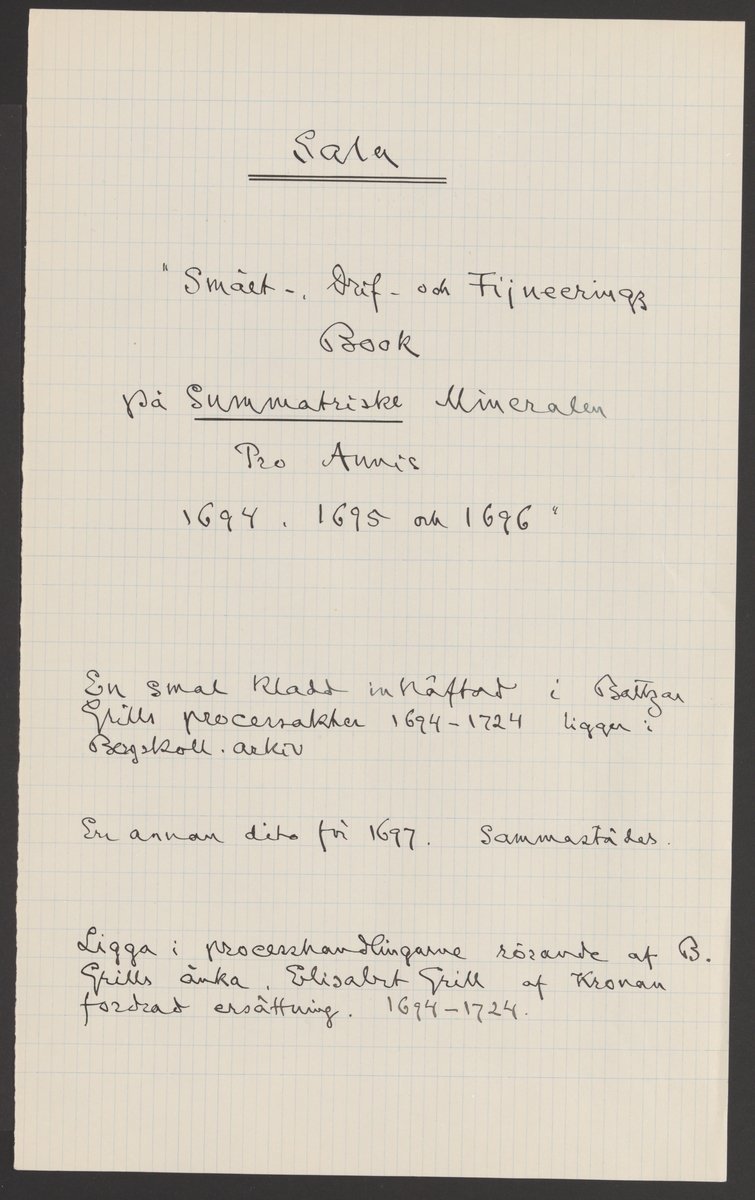 Sala
"Smält-, Drif- och Fijneerings
Book
på Summatriske Mineralen
Pro Annis
1694, 1695 och 1696"
En smal kladd inhäftad i Baltzar
Grills processakter 1694-1724 ligger i
Bergskoll. arkiv
En annan dito för 1697. Sammastädes.
Ligga i processhandlingarne rörande af B.
Grills änka, Elisabet Grill af Kronan
fordrad ersättning. 1694-1724.